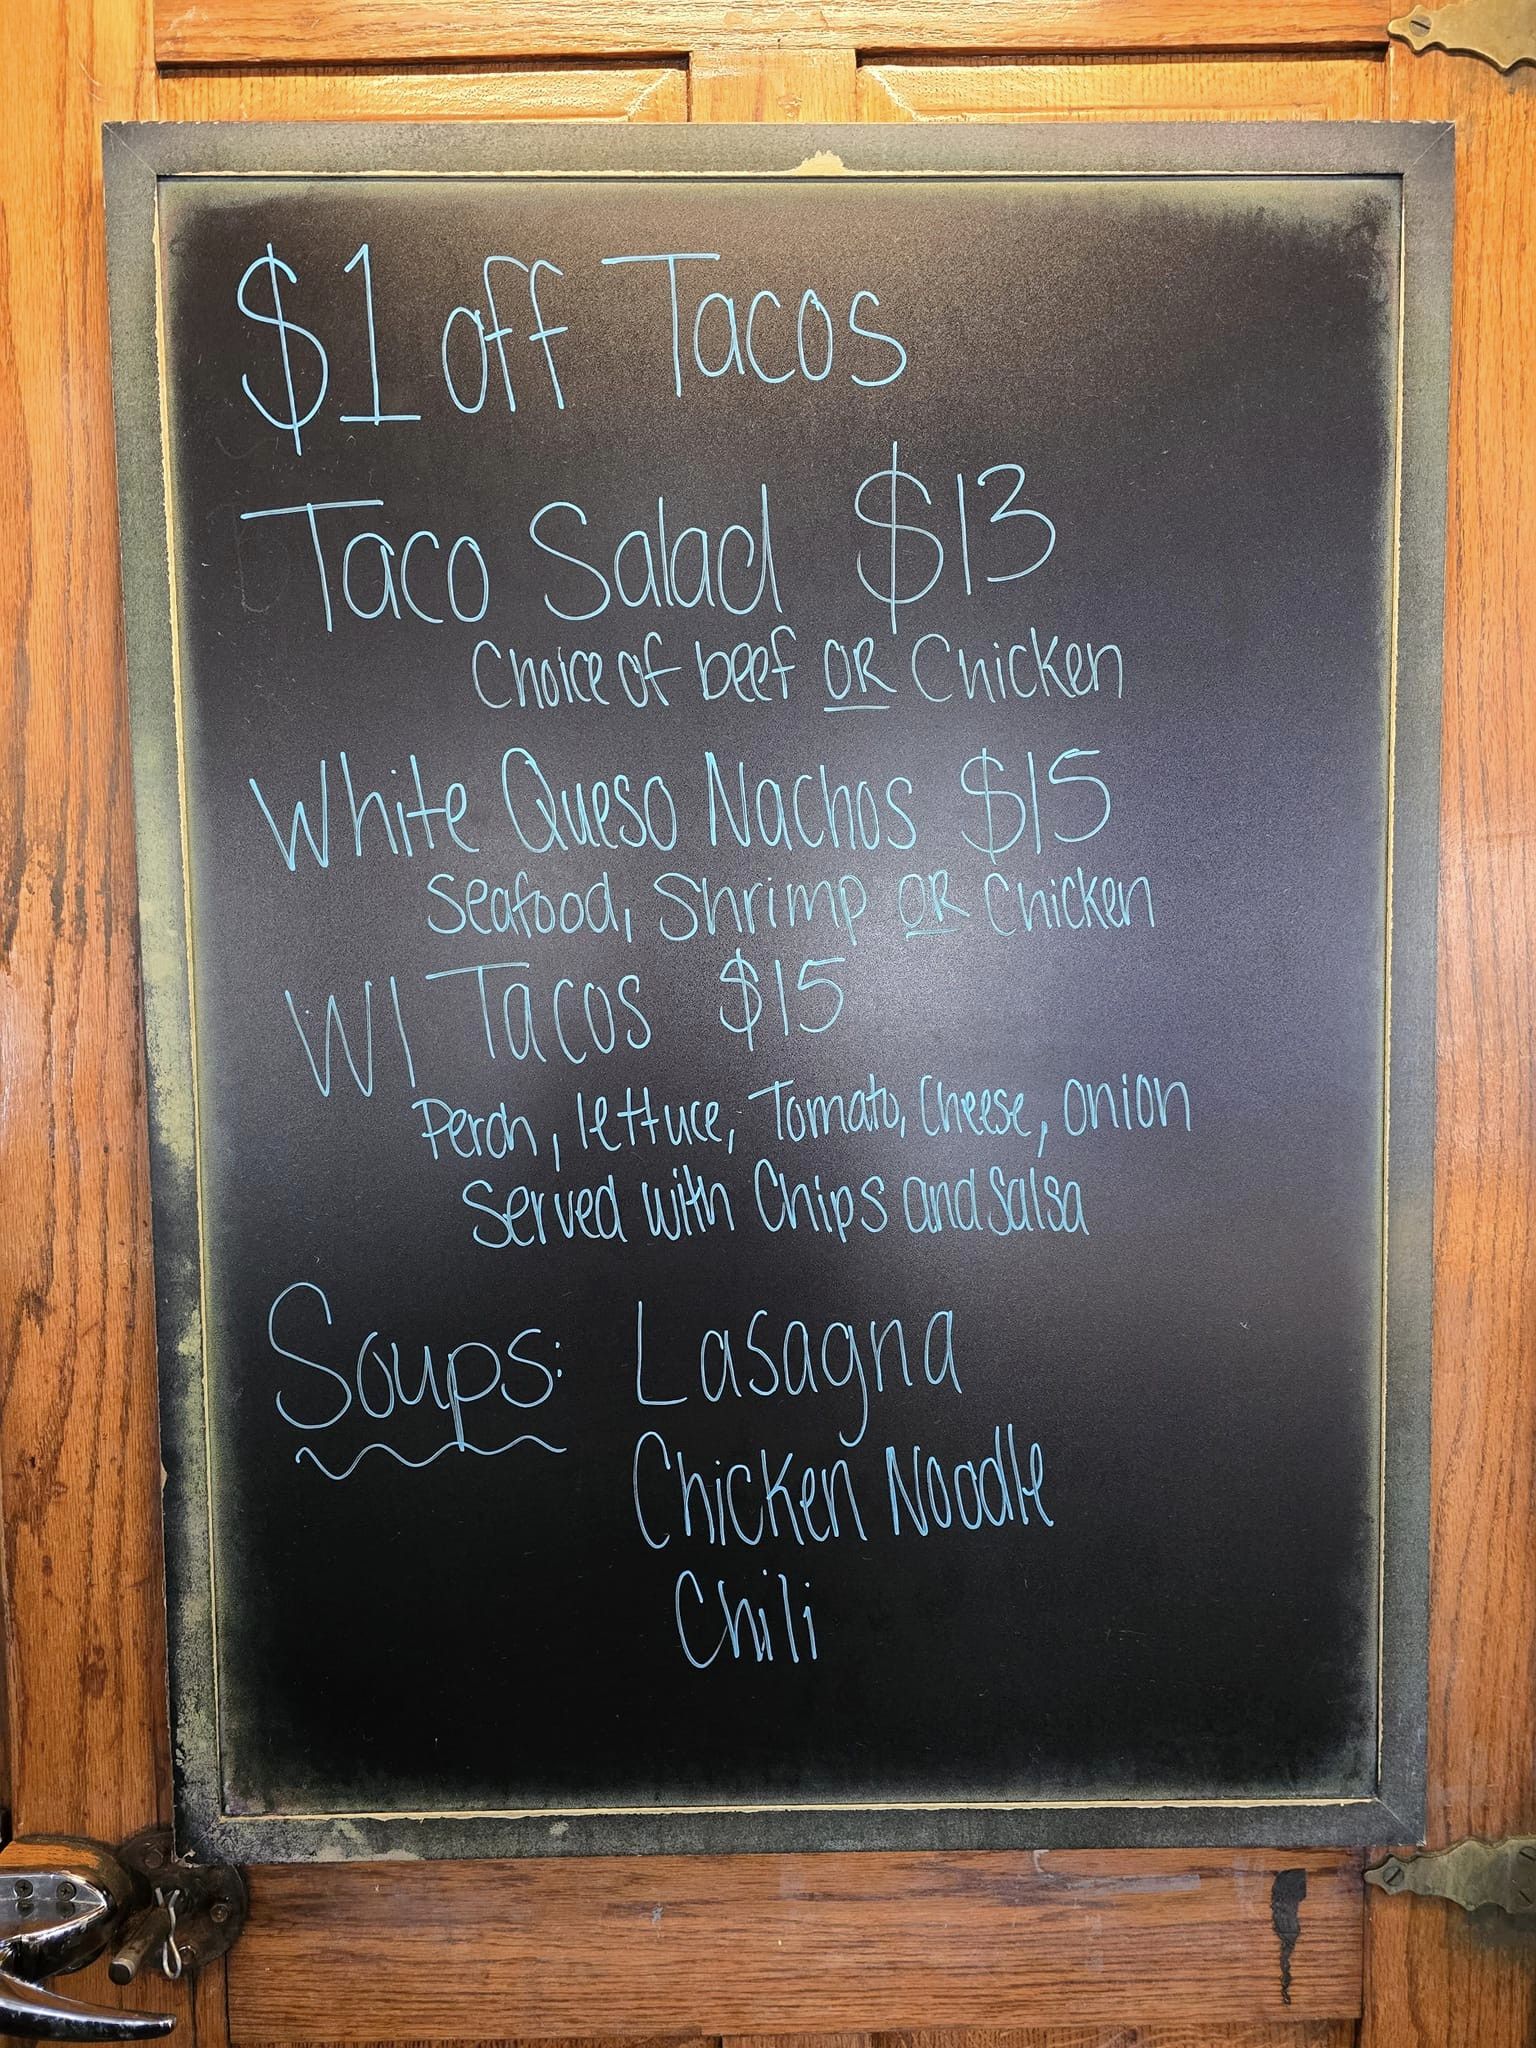 $1 off Tacos
Taco Salad $13
Choice of beef OR Chicken
White Queso Nachos $15
Seafood, Shrimp OR Chicken
WI Tacos $15
Perch, lettuce, Tomato, Cheese, onion
Served with Chips and Salsa
Soups: Lasagna
Chicken Noodle
Chili